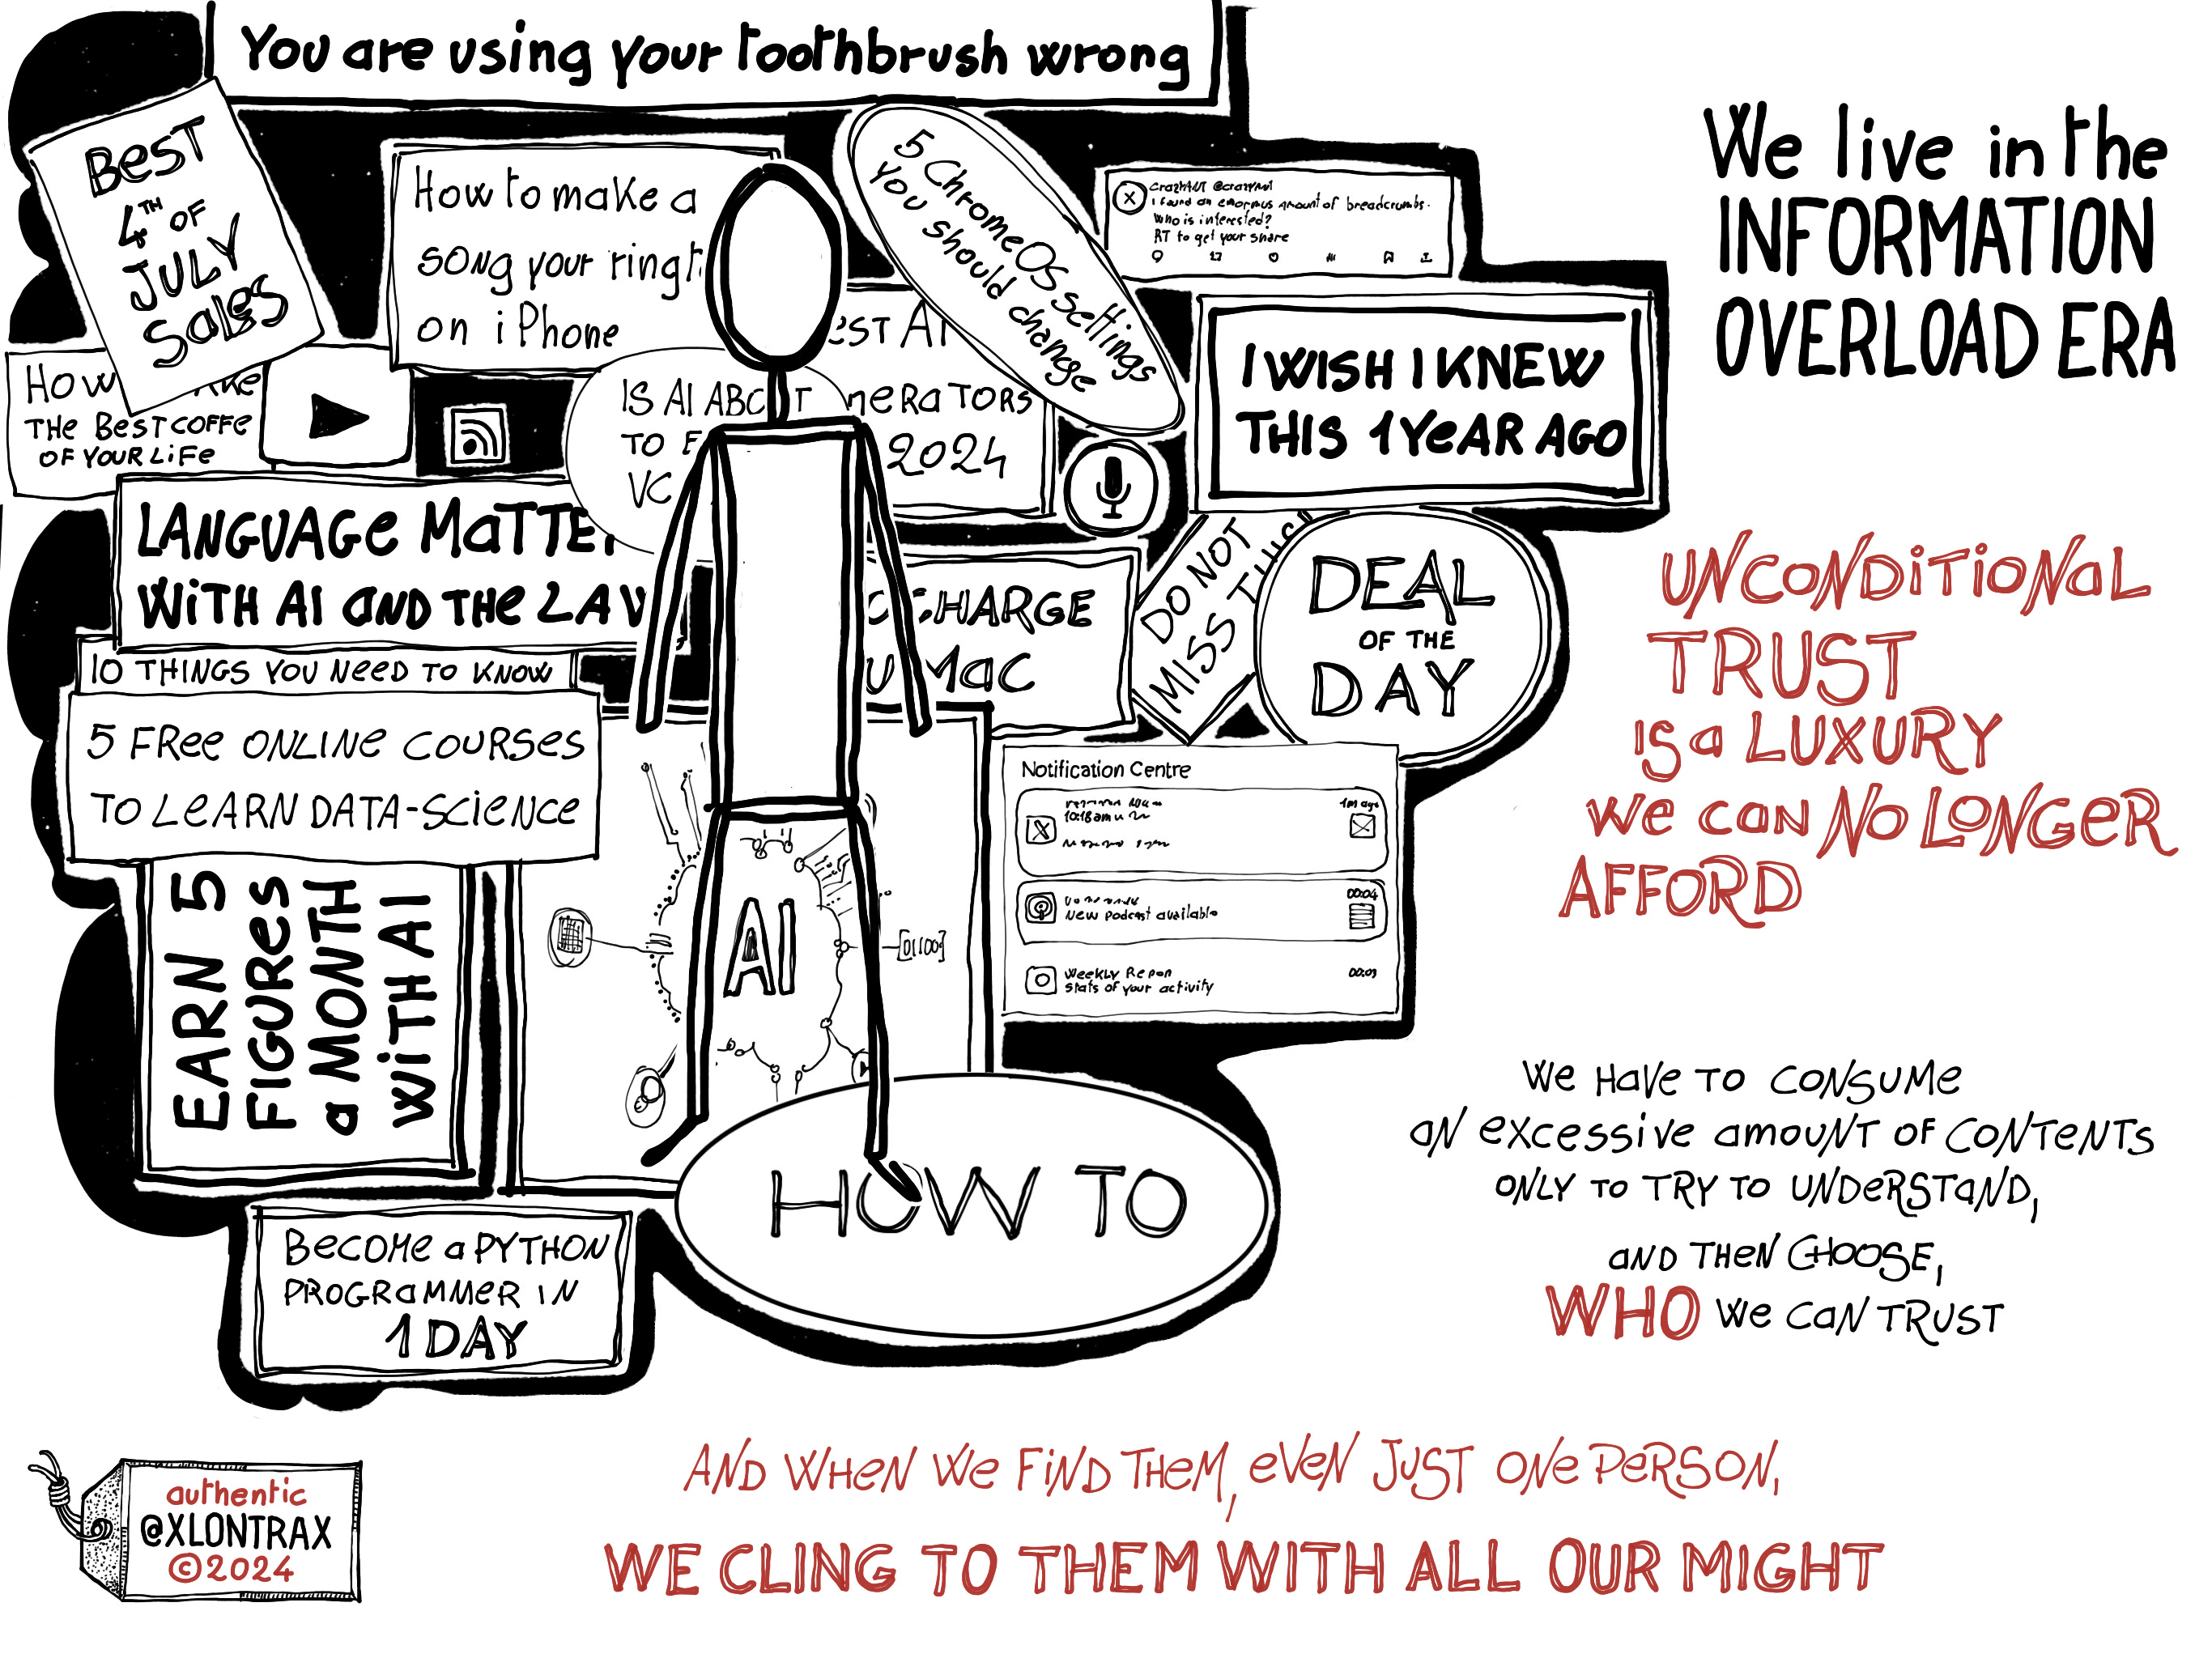 You are using your toothbrush wrong
BesT
4TH OF
JULY
Sales
How to make a
song your ringt
on iPhone
5 ChromeOS settings
you should change
CrazyAnt @crazyAnt
I found an enormous amount of breadcrumbs.
Who is interested?
RT to get your share
We live in the
INFORMATION
OVERLOAD ERA
I WISH I KNEW
THIS 1 YeAR AGO
HOW
THe BesT COFFe
OF YOUR LiFe
IS AI ABO T
TO
VC
EST AI
NeRaTORS
2024
LANGUAGe MaTTe
WiTH AI aND THe LAW
CHARGE
U Mac
DO NOT
MISS
DEAL
OF THE
DAY
UNCONDiTiONaL
TRUST
is a LUXURY
We can NO LONGeR
AFFORD
10 THINGS YOU NeeD TO KNOW
5 FRee ONLiNe COURSes
TO LeARN DATA-SCieNCE
Notification Centre
10:18am
1m ago
00:04
New podcast available
Weekly Repor
Stats of your activity
00:09
EARN 5
FIGURes
a MONTH
WiTH AI
AI
[01100]
HOW TO
BeCOMe a PYTHON
PROGRaMMeR IN
1 DAY
We HaVe TO CONSUMe
aN eXCeSSiVe aMOUNT OF CONTeNTS
ONLY TO TRY TO UNDeRSTaND,
aND THeN CHOOSE,
WHO We CaN TRUST
AND WHeN We FiND THeM, eVeN JUST ONe PeRSON,
WE CLING TO THEM WITH ALL OUR MIGHT
authentic
@XLONTRAX
©2024